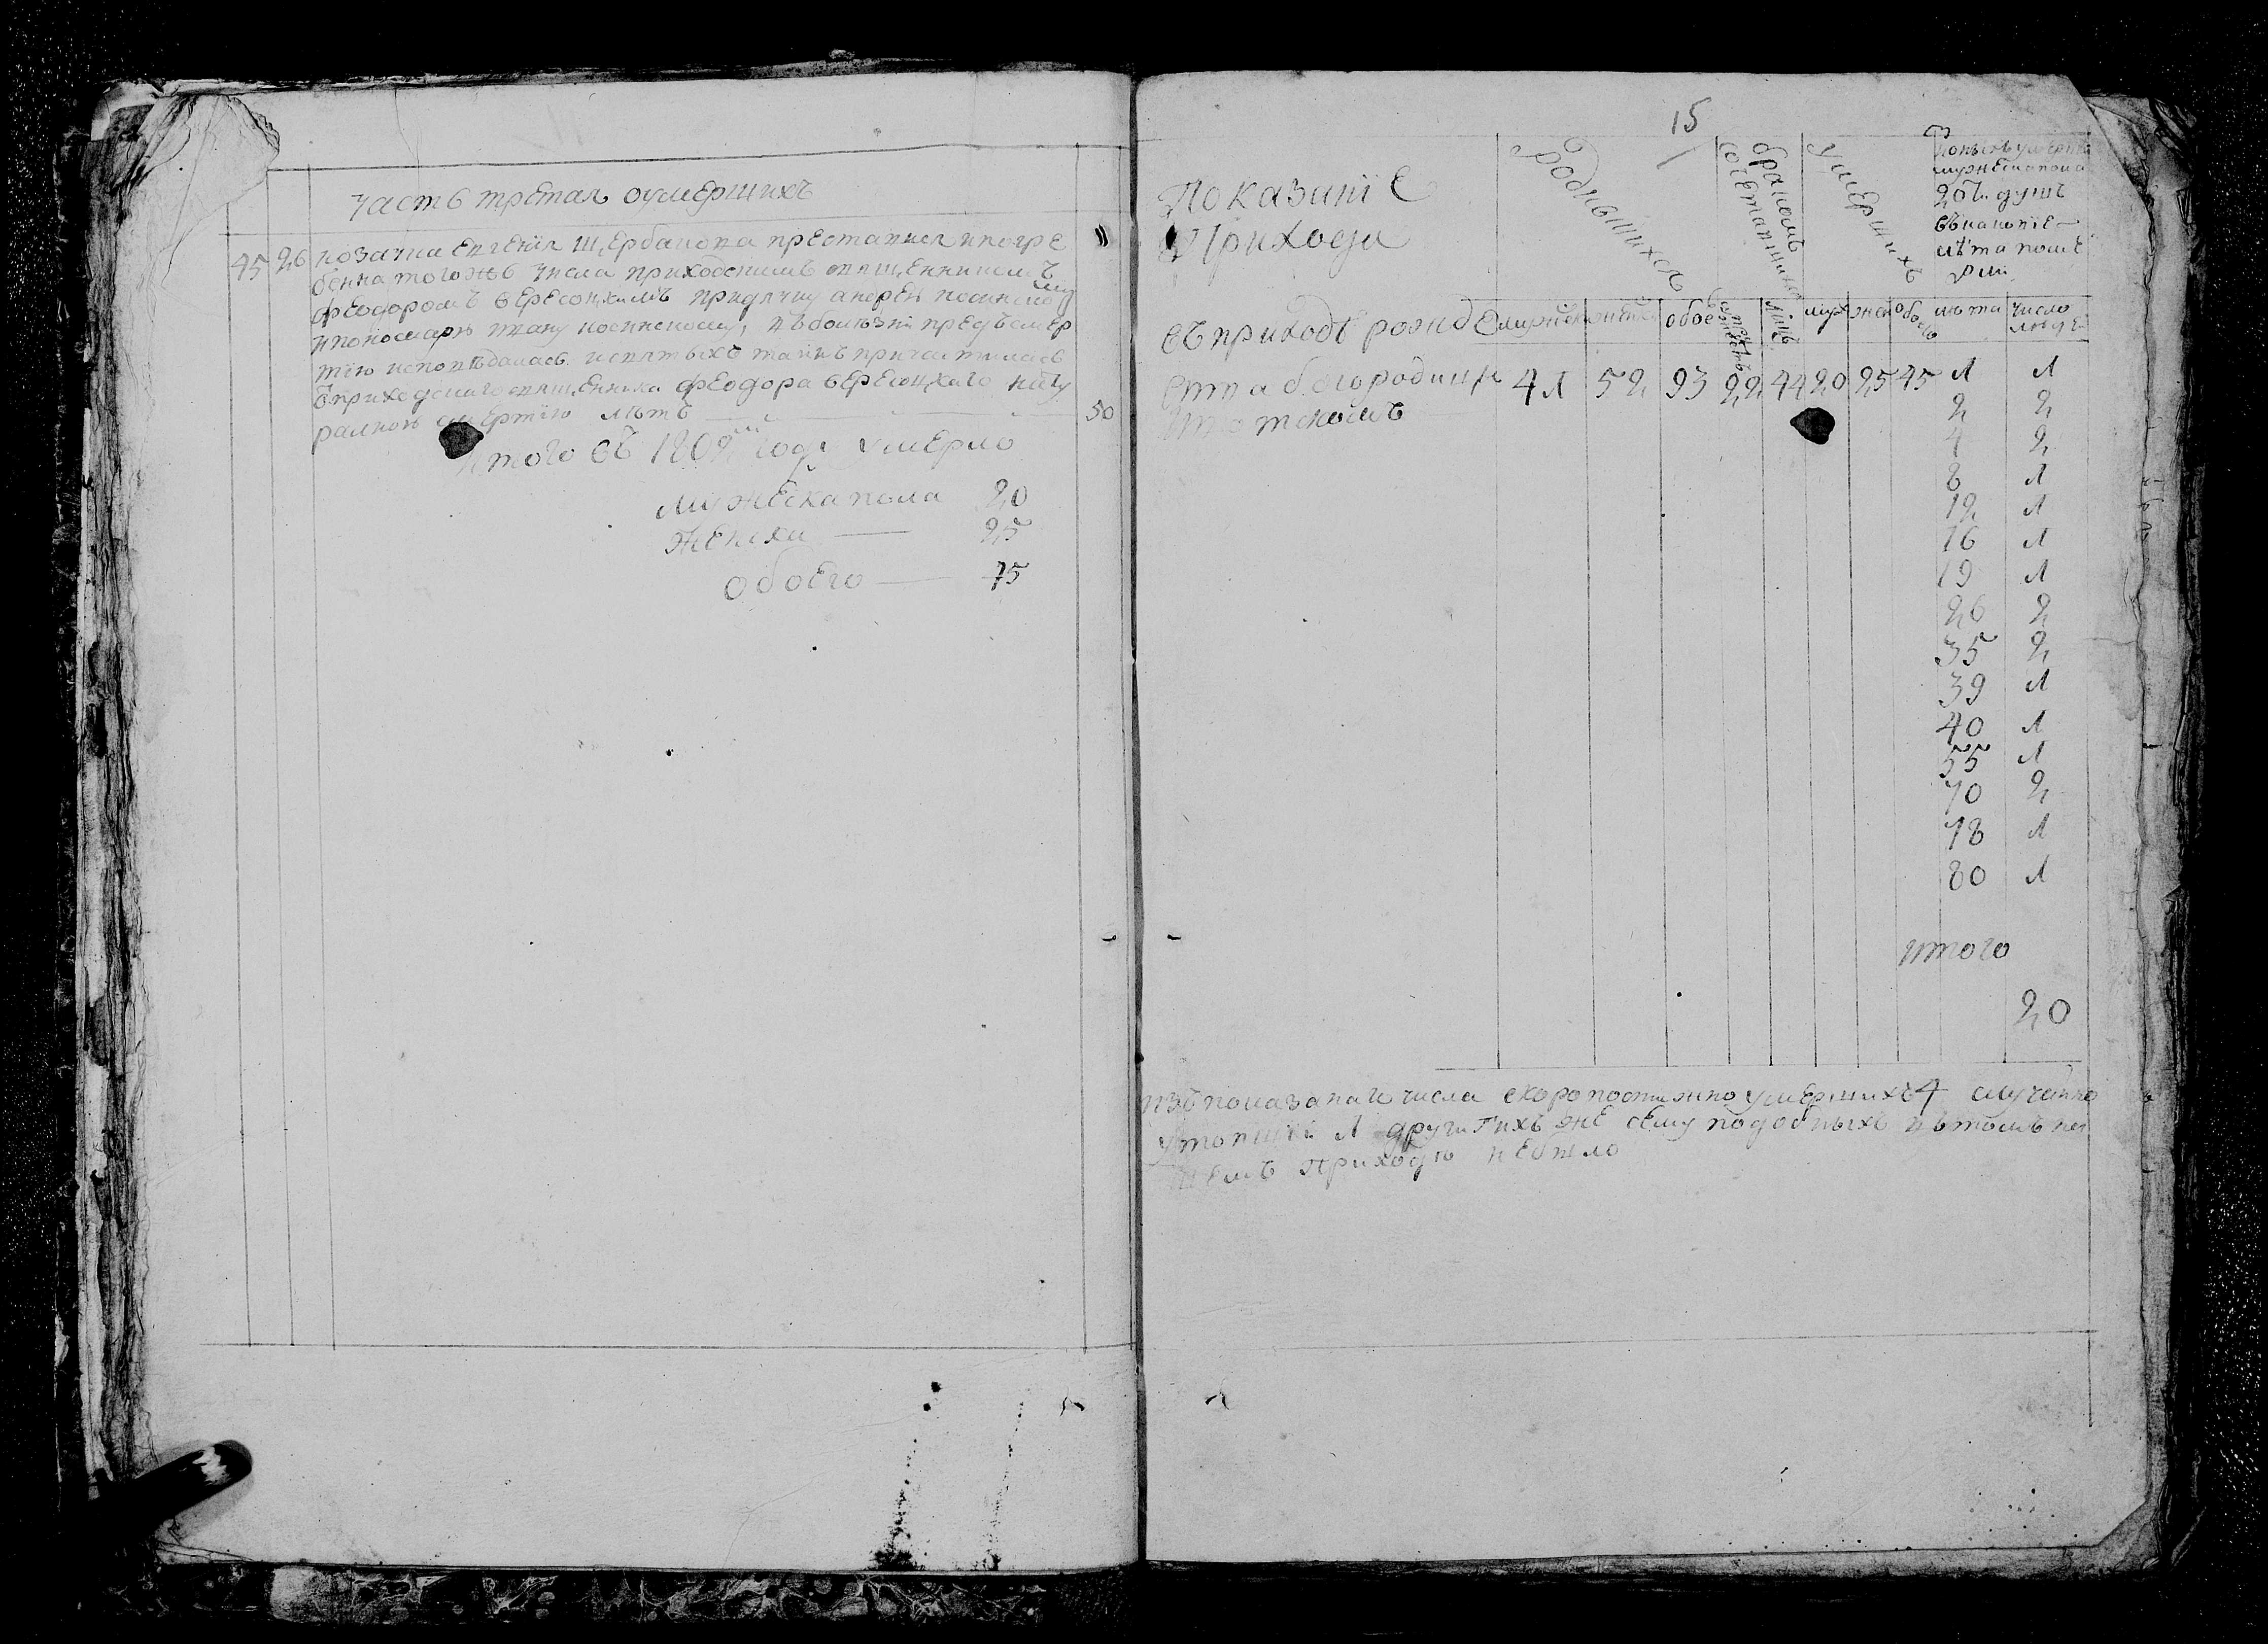 часть третая оумершихъ
45 26 козачка Евгенiя Щербакова преставися и погре
бенна того жъ числа приходскимъ священникомъ
феодоромъ Вересоцкимъ при дячку андрею
и пономарѣ, въ болѣзнѣ предъ смер
тiю исповѣдалась и святыхъ таинъ причастилась
ѿ приходского священника феодора вересоцкаго нату
ралною смертiю лѣтъ 50
Итого въ 1802м году умерло
Мужеска пола 20
Женска 25
обоего 45
15
Показанiе
Прихода
родившихся
бракомъ
сочетавшихся
умершихъ
мужеска пола
20ть душъ
лѣта
въ приходѣ рожде
обое
муж
жен
обоего
лѣта
число
людей
ства богородици 41 52 93 22 44 20 25 45 1 1
2 2
4 2
8 1
12 1
16 1
19 1
26 2
35 2
39 1
40 1
55 1
70 2
78 1
80 1
итого
20
изъ показанаго числа скоропостижно умершихъ 4 случайно
1 другихъ же сему подобныхъ въ томъ
приходѣ небыло